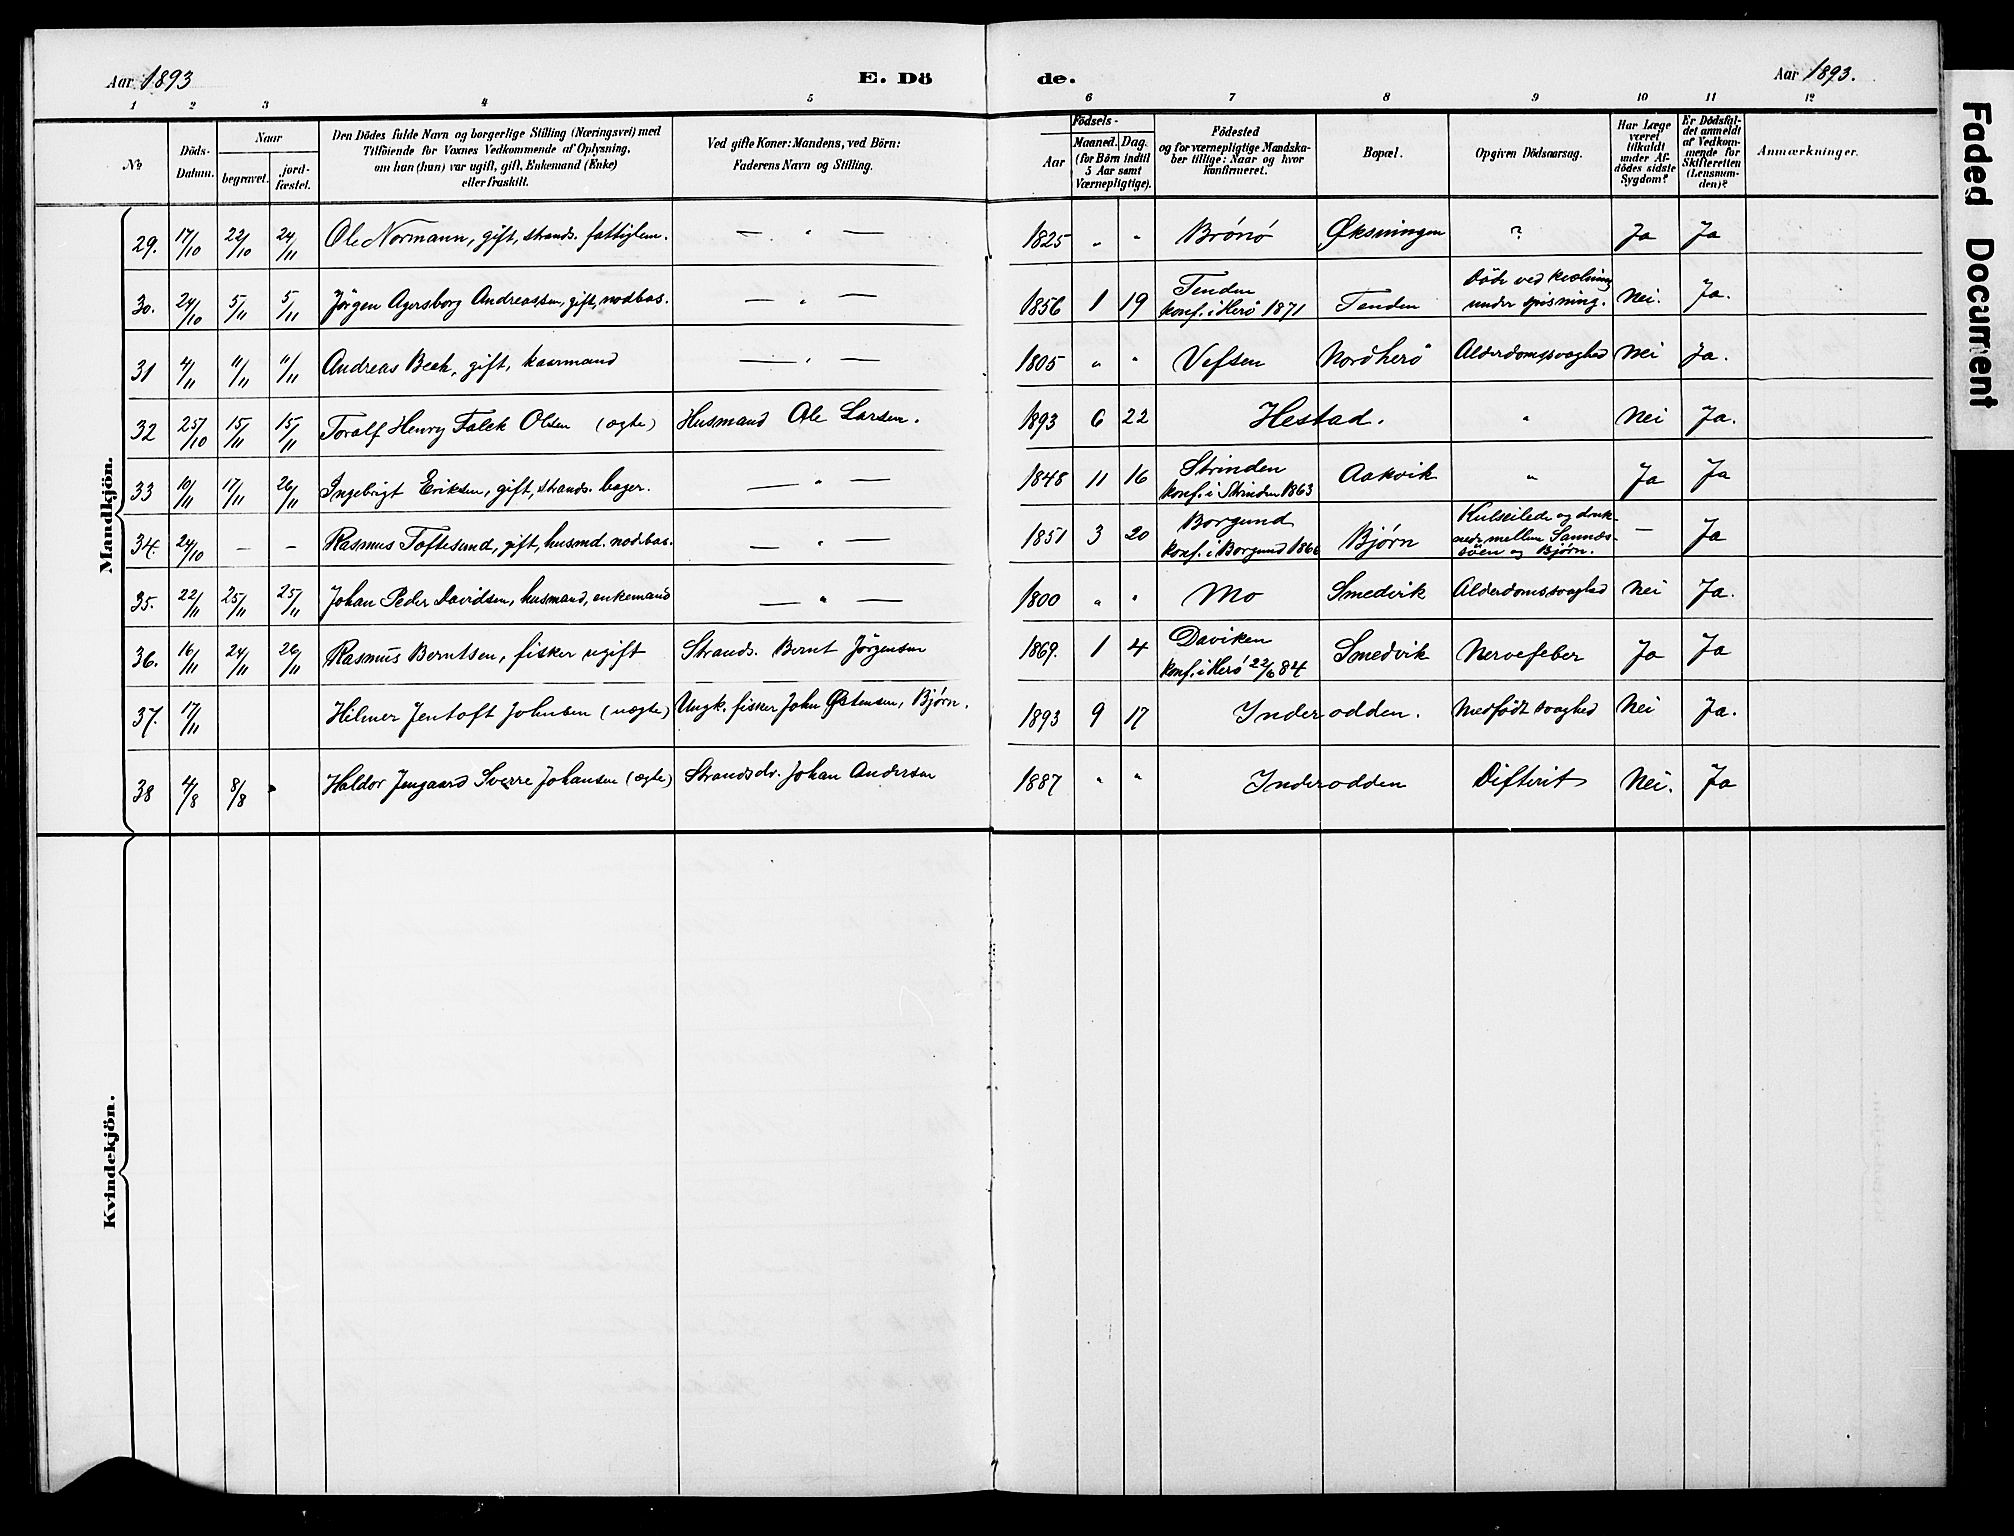 Aar 1893 E. Dö de. Aar 1893.
1 2 3 4 5 6 7 8 9 10 11 12
No
Döds-Datum.
Naar
begravet.
jord-fæstet.
Den Dödes fulde Navn og borgerlige Stilling (Næringsvei) med
Tilföiende for Voxnes Vedkommende af Oplysning,
om han (hun) var ugift, gift, Enkemand (Enke)
eller fraskilt.
Ved gifte Koner: Mandens, ved Börn:
Faderens Navn og Stilling.
Födsels-
Aar
Maaned. Dag.
(for Börn indtil
5 Aar samt
Værnepligtige).
Födested
og for værnepligtige Mandska-
ber tillige: Naar og hvor
konfirmeret.
Bopæl.
Opgiven Dödsaarsag.
Har Læge
været
tilkaldt
under Af-
dödes sidste
Sygdom?
Er Dödsfal-
det anmeldt
af Vedkom-
mende for
Skifteretten
(Lensman-
den)?
Anmærkninger.
Mandkjön.
29. 17/10 22/10 24/11 Ole Normann, gift, strands. fattiglem. — " — 1825 " " Brönö Øksningen ? Ja Ja
30. 24/10 5/11 5/11 Jörgen Agersborg Andreassen, gift, nodbas. — " — 1856 1 19 Tenden konf. i Herö 1871 Tenden Döde ved kvælning under spisning. Nei. Ja.
31 4/11 11/11 11/11 Andreas Beck, gift, kaarmand — " — 1805 " " Vefsen Nordherö Alderdomssvaghed Nei Ja.
32 25/10 15/11 15/11 Toralf Henry Falck Olsen (ægte) Husmand Ole Larsen. 1893 6 22 Hestad. " Nei Ja.
33 10/11 17/11 26/11 Ingebrigt Eriksen, gift, strands. bager. — " — 1848 11 16 Strinden konf. i Strinden 1863 Aakvik " Ja Ja
34. 24/10 — — Rasmus Toftesund, gift, husmd. nodbas. — " — 1851 3 20 Borgund konf. i Borgund 186 Bjørn Kulseilede og druk-
nede mellem Sannæs-
söen og Bjørn. — Ja
35. 22/11 25/11 25/11 Johan Peder Davidsen, husmand, enkemand — " — 1800 " " Mo Smedvik Alderdomssvaghed Nei Ja.
36. 16/11 24/11 26/11 Rasmus Berntsen, fisker ugift Strands. Bernt Jörgensen 1869. 1 4 Daviken konf. i Herö 22/6 84 Smedvik Nervefeber Ja Ja
37. 17/11 Hilmer Jentoft Johnsen (uægte) Ungk. fisker John Østensen, Bjørn. 1893 9 17 Inderodden. Medfödt svaghed Nei Ja.
38 4/8 8/8 Haldor Jengaard Sverre Johansen (ægte) Strandsdr. Johan Andersen 1887 " " Inderodden Difterit Nei. Ja
Kvindekjön.
Faded Document